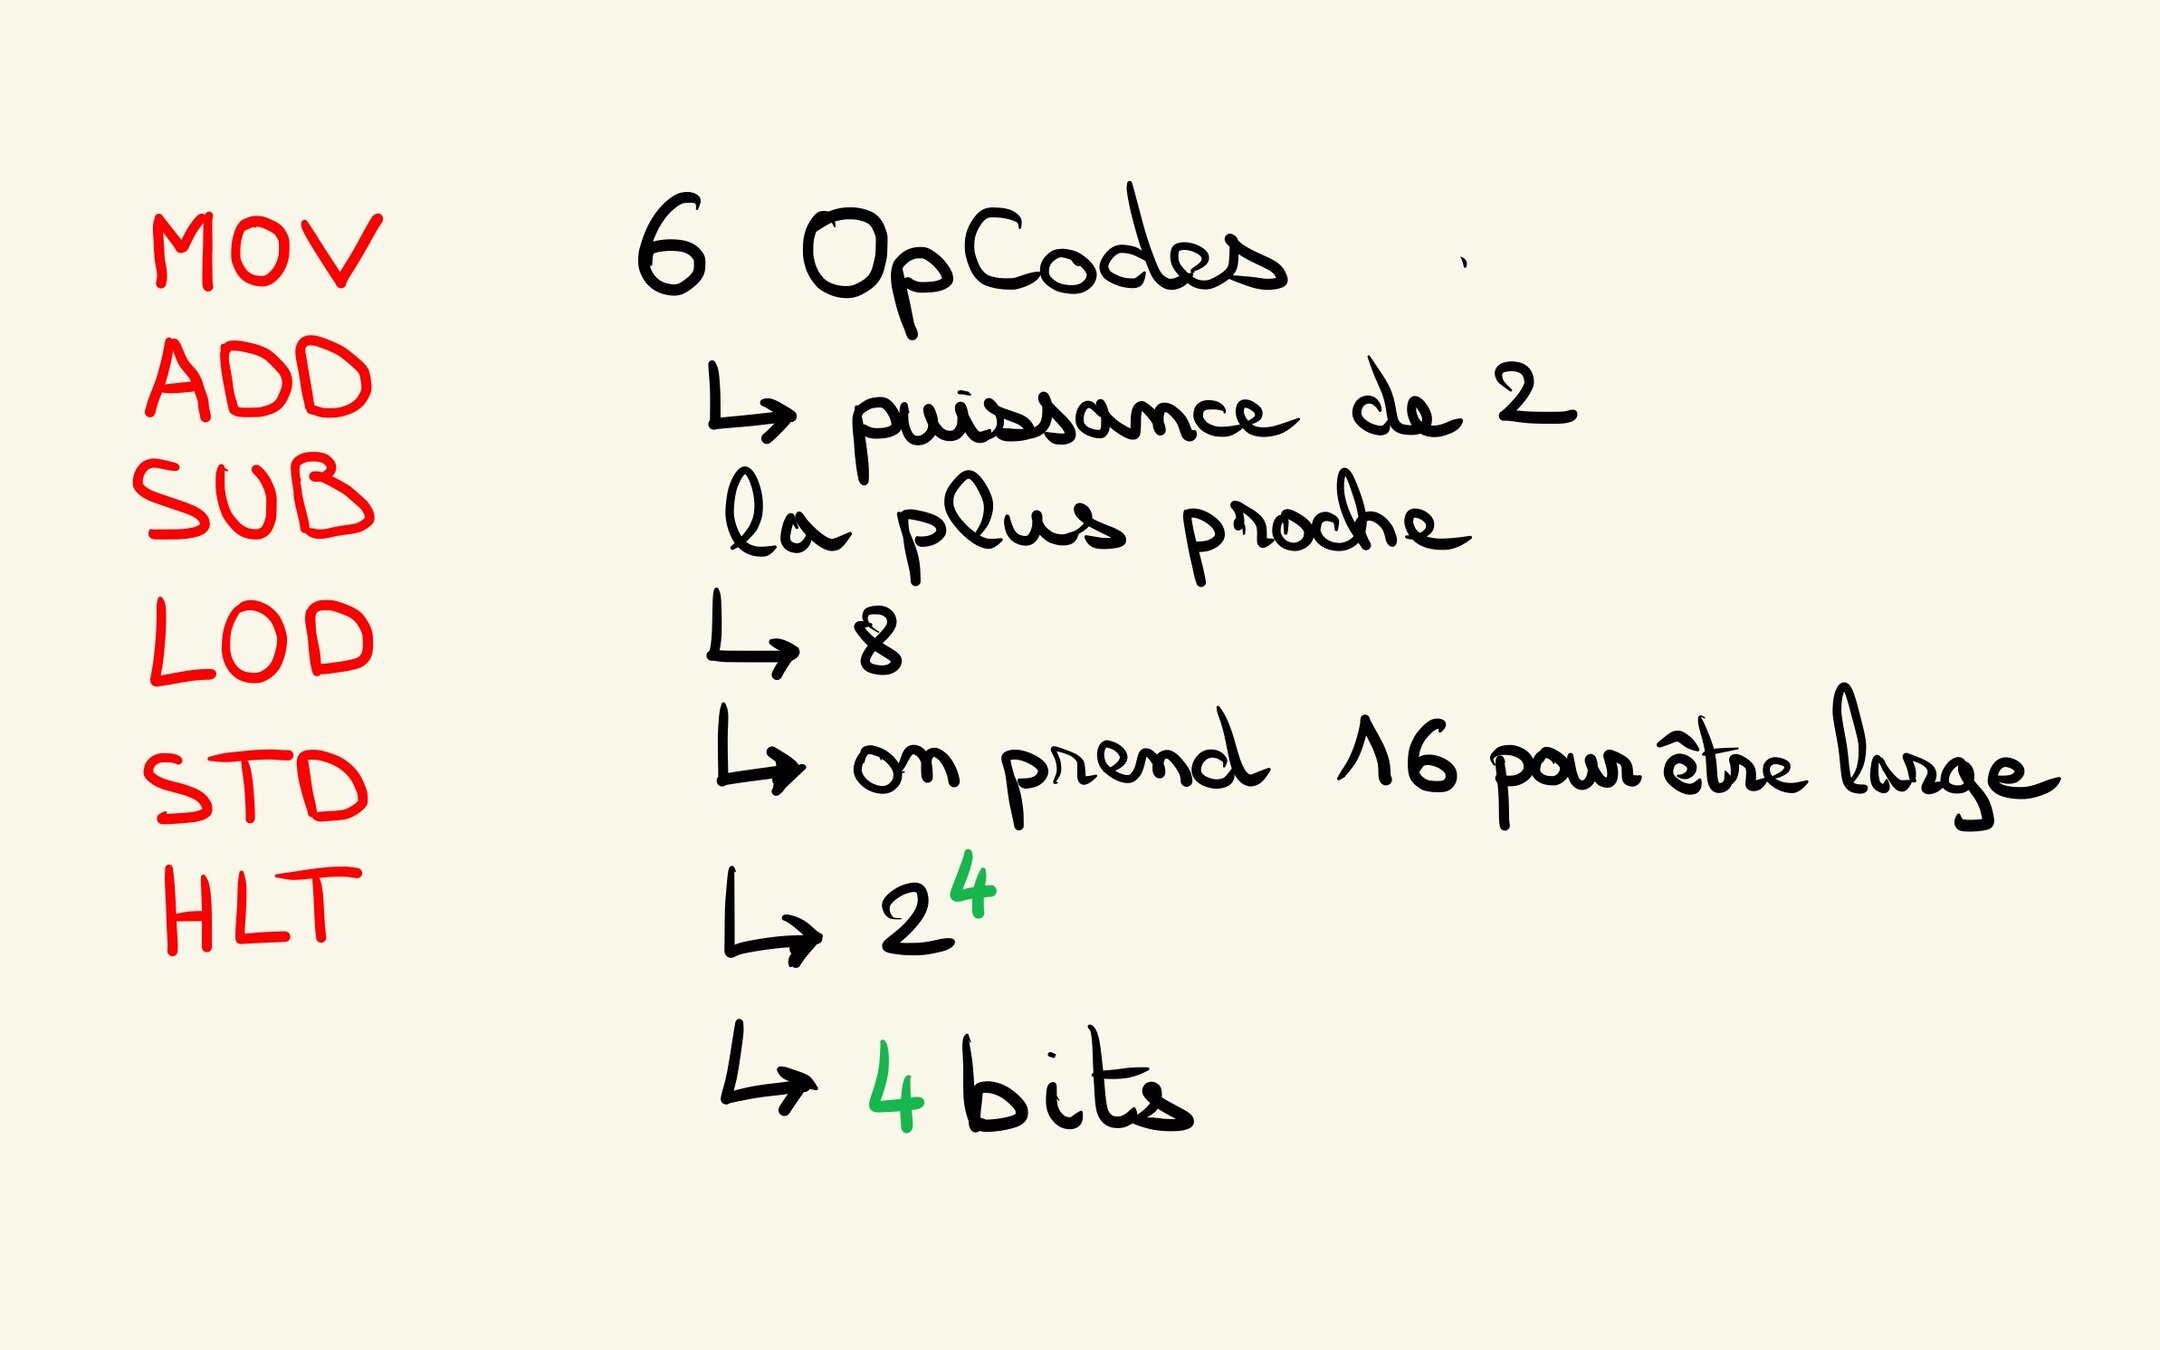 MOV
ADD
SUB
LOD
STD
HLT
6 OpCodes
↳ puissance de 2
la plus proche
↳ 8
↳ on prend 16 pour être large
↳ 2⁴
↳ 4 bits